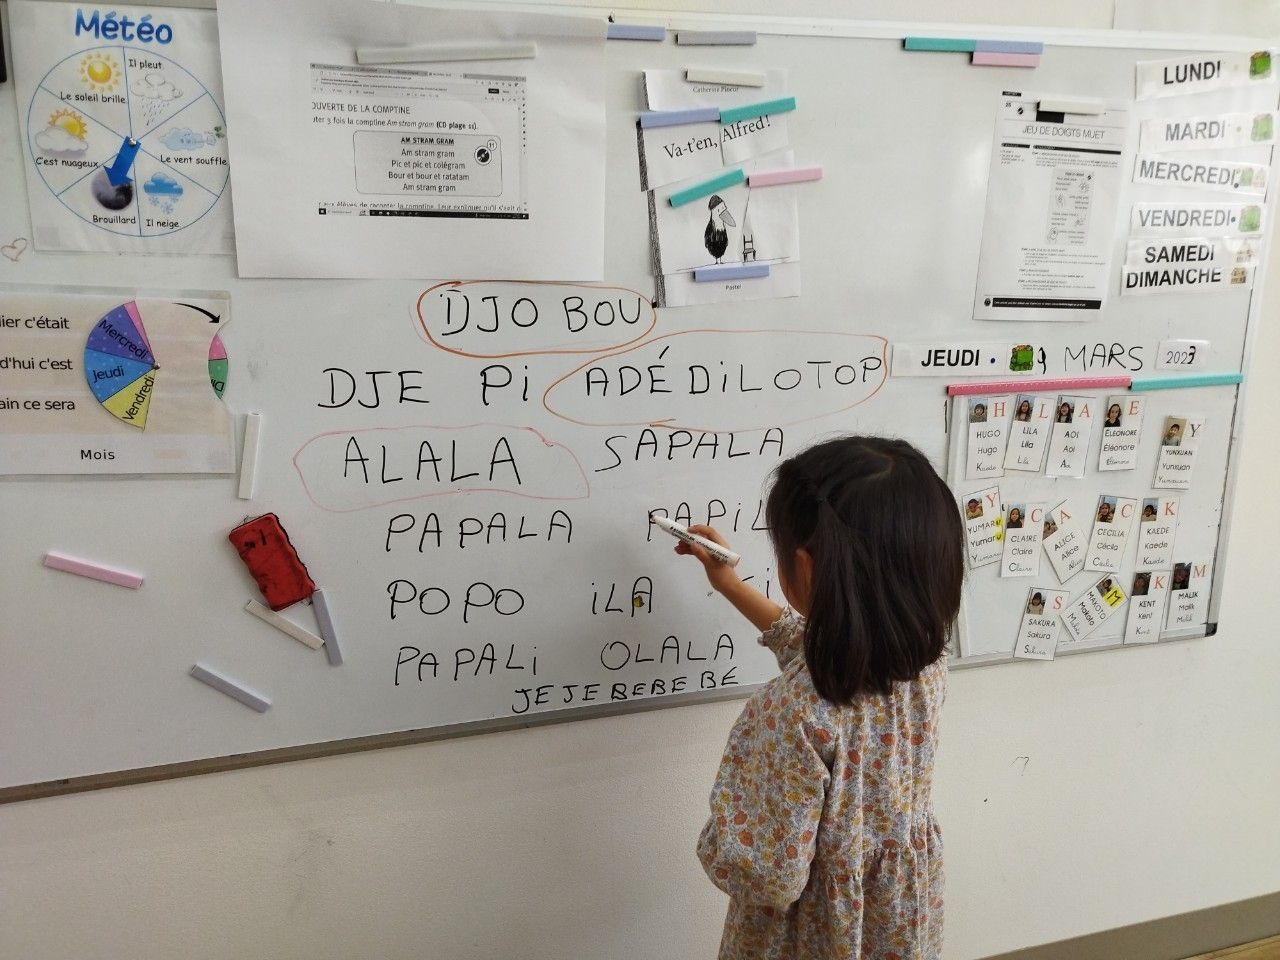 Météo
Il pleut
Le soleil brille
C'est nuageux
Le vent souffle
Brouillard
Il neige
OUVERTE DE LA COMPTINE
uter 3 fois la comptine Am stram gram (CD plage 11).
AM STRAM GRAM
11
Am stram gram
Pic et pic et colégram
Bour et bour et ratatam
Am stram gram
Catherine Pineur
Va-t'en, Alfred!
Pastel
JEU DE DOIGTS MUET
LUNDI
MARDI
MERCREDI
VENDREDI
SAMEDI
DIMANCHE
JEUDI 9 MARS 2023
ier c'était
d'hui c'est
ain ce sera
Mercredi
Jeudi
Vendredi
Mois
DJO BOU
DJE Pi ADÉDiLOTOP
ALALA SAPALA
PAPALA PAPiL
POPO iLA
PAPALi OLALA
JEJEBEBEBÉ
H
HUGO
Hugo
L
LILA
Lila
Lila
A
AOI
Aoi
Aoi
E
ÉLÉONORE
Éléonore
Éléonore
Y
YUNXUAN
Yunxuan
Yunxuan
Y
YUMARU
Yumaru
Yumaru
C
CLAIRE
Claire
Claire
A
ALICE
Alice
Alice
C
CECILIA
Cécilia
Cécilia
K
KAEDE
Kaede
Kaede
S
SAKURA
Sakura
Sakura
M
MAKOTO
Makoto
Makoto
K
KENT
Kent
Kent
M
MALIK
Malik
Malik